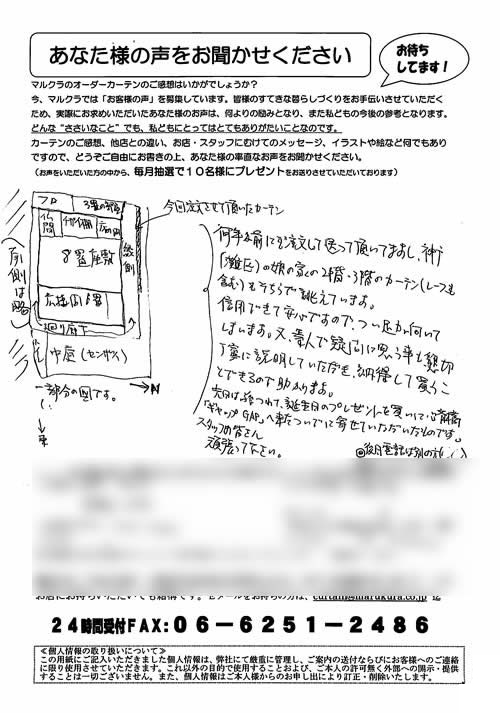 あなた様の声をお聞かせください
お待ち
してます！
マルクラのオーダーカーテンのご感想はいかがでしょうか？
今、マルクラでは「お客様の声」を募集しています。皆様のすてきな暮らしづくりをお手伝いさせていただく
ため、実際にお求めいただいたあなた様のお声は、何よりの励みとなり、また私どもの今後の参考となります。
どんな“ささいなこと”でも、私どもにとってはとてもありがたいことなのです。
カーテンのご感想、他店との違い、お店・スタッフにむけてのメッセージ、イラストや絵など何でもあり
ですので、どうぞご自由にお書きの上、あなた様の率直なお声をお聞かせください。
（お声をいただいた方の中から、毎月抽選で１０名様にプレゼントをお送りさせていただいております）
今回注文させて頂いたカーテン
仏間
8畳座敷
縁側
廻り廊下
中庭
N
一部分の図です。
東
何年か前にも注文して送って頂いてますし、神戸
(灘区)の娘の家の2階・3階のカーテン(レースも
含む)もそちらで誂えています。
信用できて安心ですので、つい足が向いて
しまいます。又、素人で疑問に思う事も親切
丁寧に説明していただき、納得して買うこ
とできるので助かります。
スタッフの皆さん
頑張って下さい。
お店にお持ちいただいても結構です。Eメールをお持ちの方は、curtain@marukura.co.jp 迄
２４時間受付FAX：０６－６２５１－２４８６
≪個人情報の取り扱いについて≫
この用紙にご記入いただきました個人情報は、弊社にて厳重に管理し、ご案内の送付ならびにお客様へのご連絡
に限り使用させていただきます。これ以外の目的で使用することおよび、ご本人の許可無く外部への開示・提供
することは一切ございません。また、個人情報はご本人様からのお申し出により訂正・削除いたします。